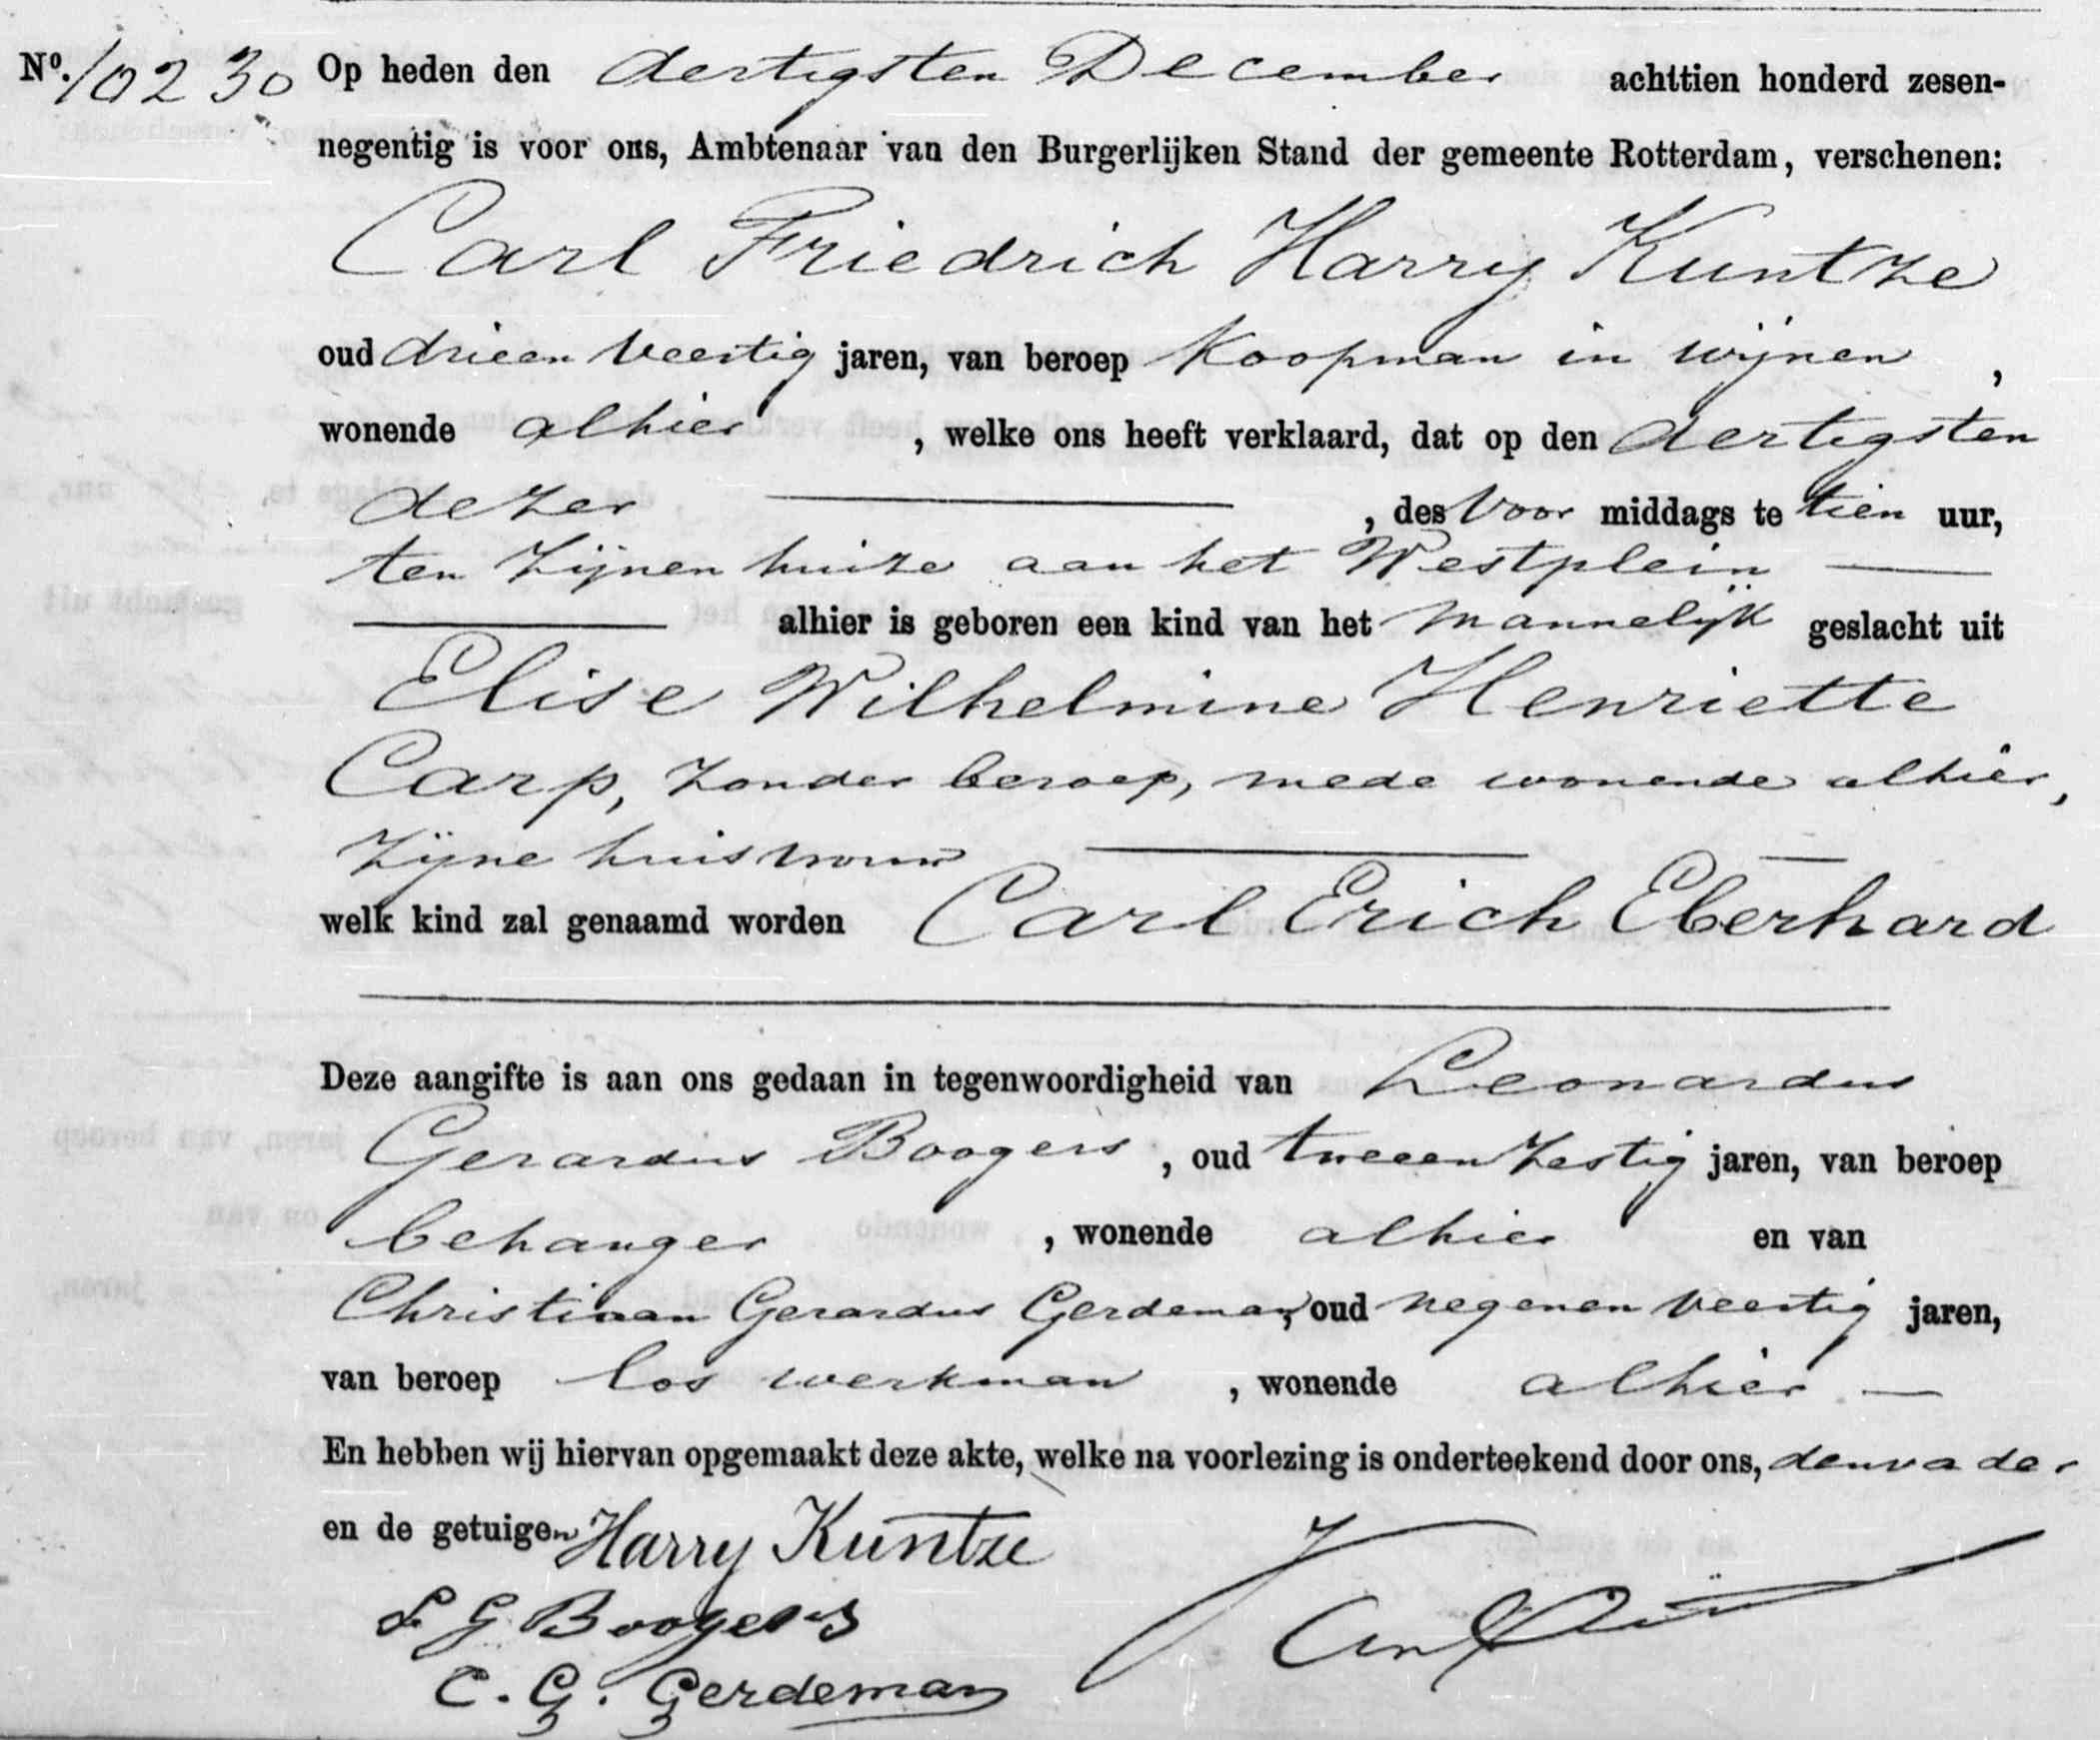 No. 10230 Op heden den dertigsten December achttien honderd zesen-
negentig is voor ons, Ambtenaar van den Burgerlijken Stand der gemeente Rotterdam, verschenen:
Carl Friedrich Harry Kuntze
oud drieen veertig jaren, van beroep Koopman in wijnen,
wonende alhier, welke ons heeft verklaard, dat op den dertigsten
dezer, des voor middags te tien uur,
ten zijnen huize aan het Westplein
alhier is geboren een kind van het mannelijk geslacht uit
Elise Wilhelmine Henriette
Carp, zonder beroep, mede wonende alhier,
zijne huisvrouw
welk kind zal genaamd worden Carl Erich Eberhard
Deze aangifte is aan ons gedaan in tegenwoordigheid van Leonardus
Gerardus Boogers, oud tweeen zestig jaren, van beroep
behanger, wonende alhier en van
Christiaan Gerardus Gerdeman, oud negenen veertig jaren,
van beroep los werkman, wonende alhier
En hebben wij hiervan opgemaakt deze akte, welke na voorlezing is onderteekend door ons, den vader
en de getuigen Harry Kuntze
L G Boogers
C. G. Gerdeman